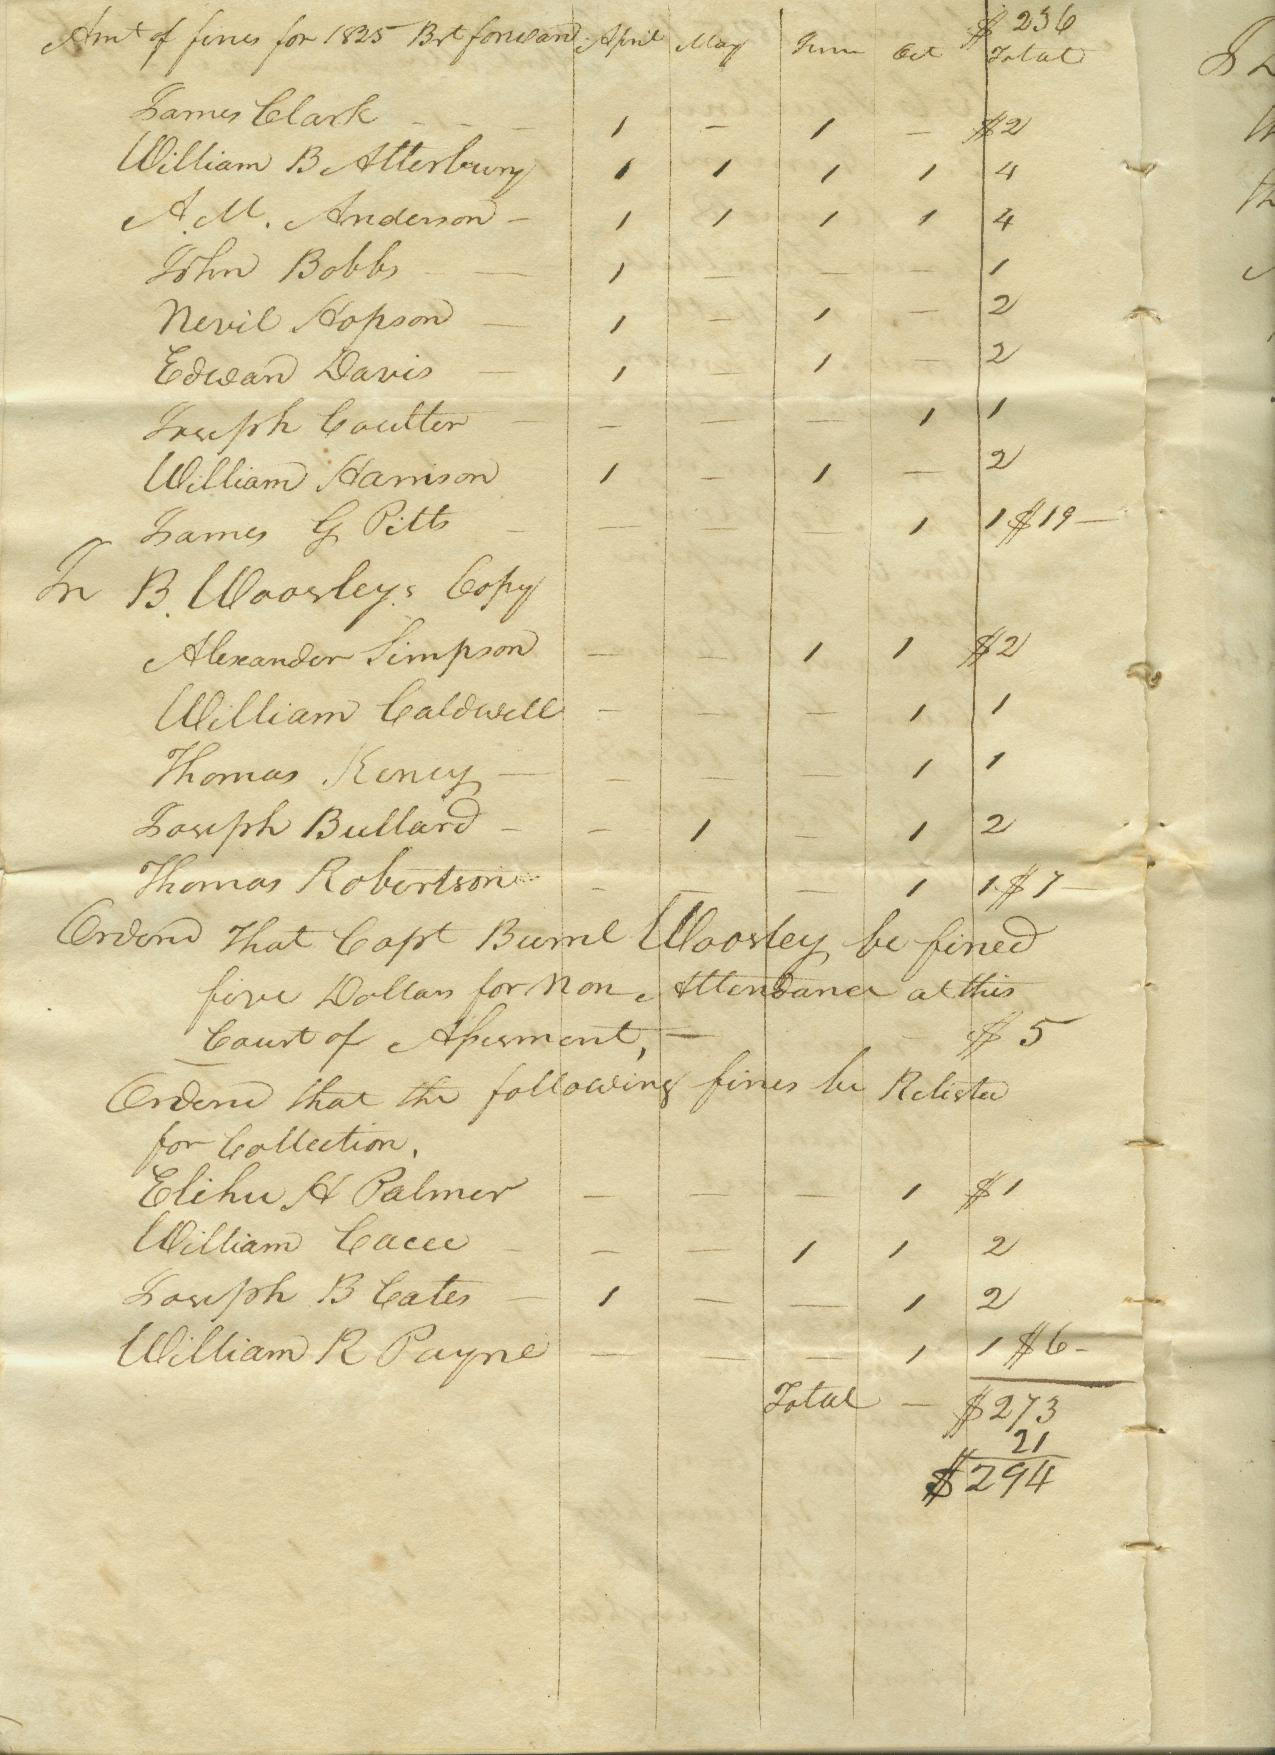 Amt of fines for 1825 Brt forward April May June Oct $ 236 Total
James Clark - - - 1 - 1 - $2
William B Atterbury 1 1 1 1 4
A. M. Anderson - 1 1 1 1 4
John Bobbs - - 1 - - - 1
Nevil Hopson - 1 - 1 - 2
Edward Davis - 1 - 1 - 2
Joseph Coulter - - - - 1 1
William Harrison 1 - 1 - 2
James G Pitts - - - - 1 1 $19 -
In B. Woosley's Copy
Alexander Simpson - - 1 1 $2
William Caldwell - - - 1 1
Thomas Keney - - - - 1 1
Joseph Bullard - - 1 - 1 2
Thomas Robertson - - - 1 1 $7 -
Orderd that Capt Burrel Woosley be fined
five Dollars for Non Attendance at this
Court of Assesment, - - $ 5
Orderd that the following fines be Relisted
for Collection.
Elihu H Palmer - - - 1 $1
William - - - 1 1 2
Joseph B Cates - 1 - - 1 2
William R Payne - - - 1 1 $6 -
Total - $273
21
$294